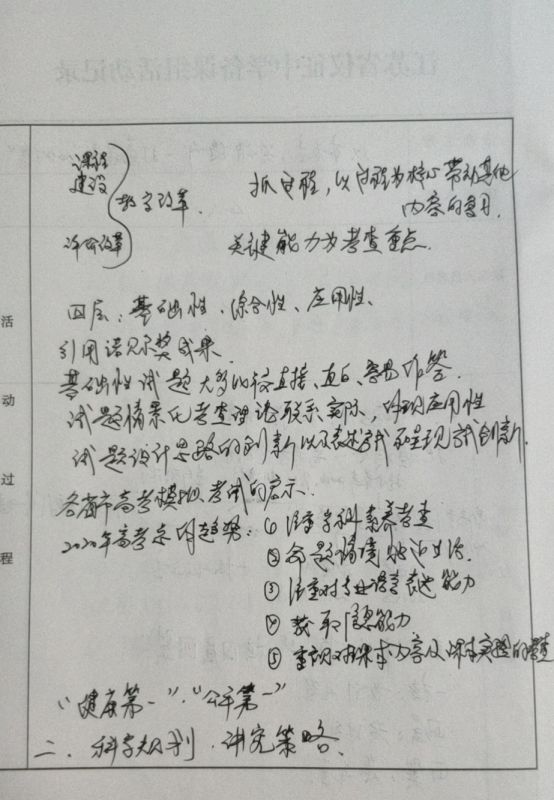 江苏省仪征中学备课组活动记录
课程
建设
教学改革
评价改革
抓过程，以过程为核心带动其他
内容的复习
关键能力为考查重点
四层：基础性、综合性、应用性、
引用诺贝尔奖成果
基础性试题大多比较直接、直白、容易作答
试题情景化考查理论联系实际，体现应用性
试题设计思路的创新以及表述方式和呈现方式创新
各省市高考模拟考试的启示
2020年高考命题趋势：① 注重学科素养考查
② 命题情境贴近生活
③ 注重对专业语言表达能力
④ 获取信息能力
⑤ 重视对课本内容及课本实验的考查
“健康第一”“公平第一”
二、科学规划，讲究策略
活
动
过
程